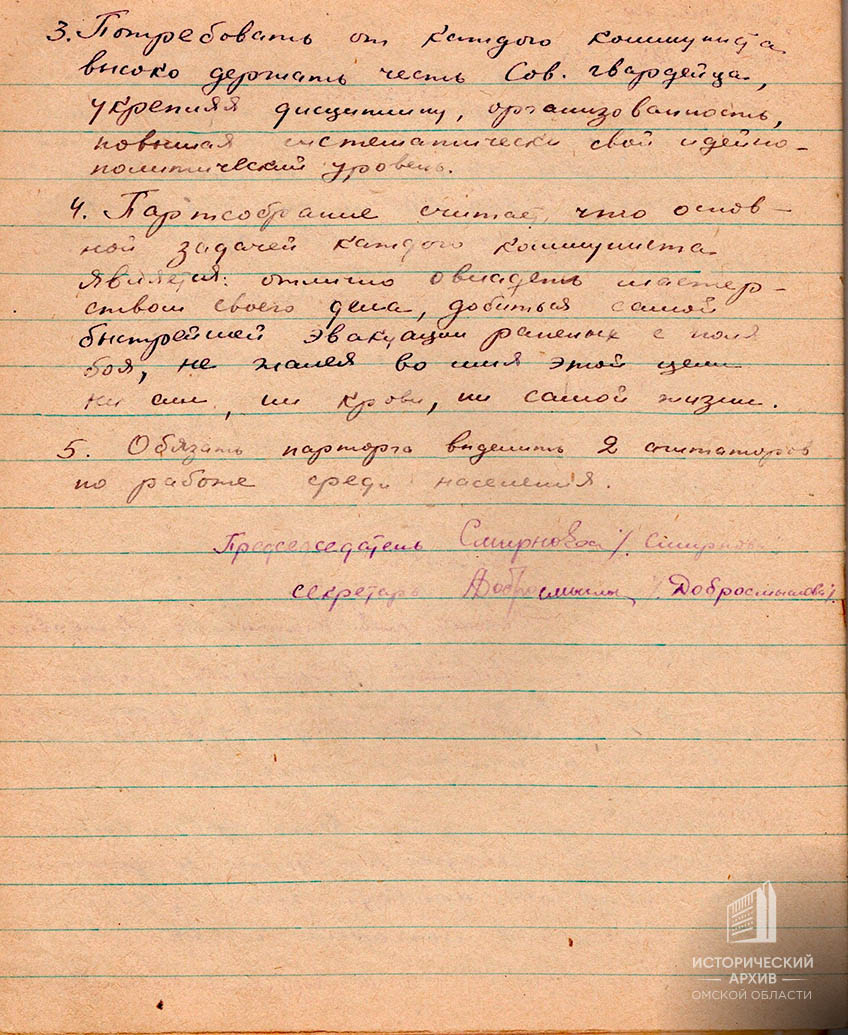 3. Потребовать от каждого коммуниста
высоко держать честь Сов. гвардейца,
укрепляя дисциплину, организованность,
повышая систематически свой идейно-
политический уровень.
4. Партсобрание считает, что основ-
ной задачей каждого коммуниста
является: отлично овладеть мастер-
ством своего дела, добиться самой
быстрейшей эвакуации раненых с поля
боя, не жалея во имя этой цели
ни сил, ни крови, ни самой жизни.
5. Обязать парторга выделить 2 агитаторов
по работе среди населения.
Председатель Смирнова /. Смирнова
секретарь Добромыслы /. Добросмыслова /.
ИСТОРИЧЕСКИЙ
АРХИВ
ОМСКОЙ ОБЛАСТИ